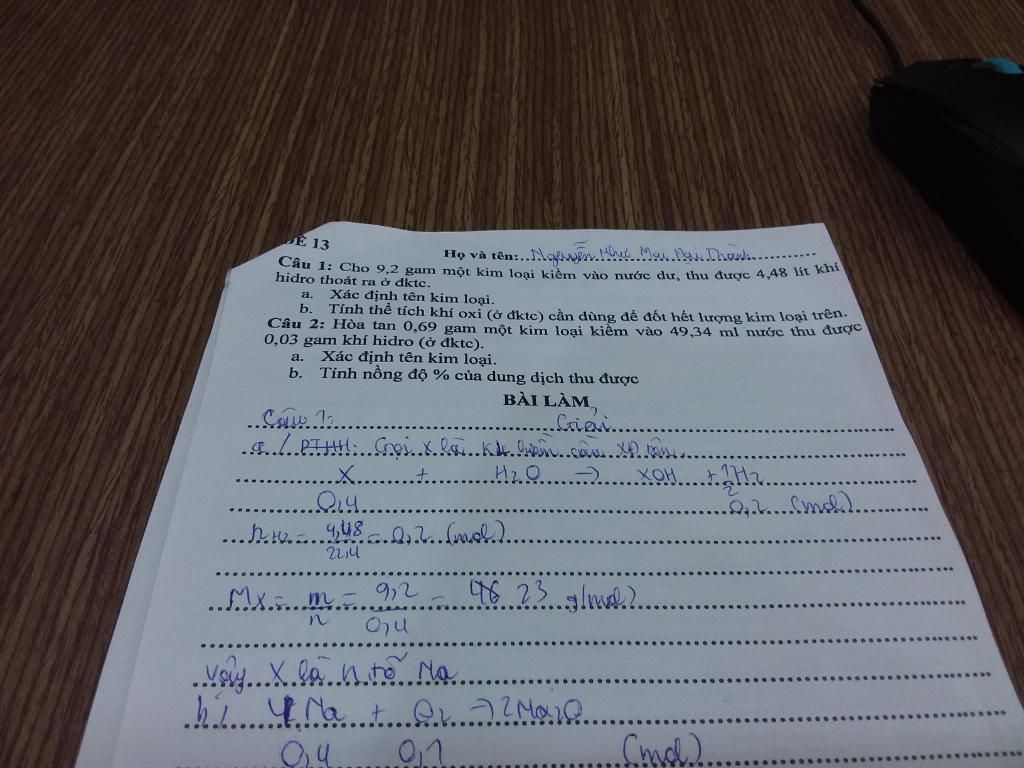 ĐỀ 13
Họ và tên: Nguyễn Như Mai Đại Thành
Câu 1: Cho 9,2 gam một kim loại kiềm vào nước dư, thu được 4,48 lít khí
hidro thoát ra ở đktc.
a. Xác định tên kim loại.
b. Tính thể tích khí oxi (ở đktc) cần dùng để đốt hết lượng kim loại trên.
Câu 2: Hòa tan 0,69 gam một kim loại kiềm vào 49,34 ml nước thu được
0,03 gam khí hidro (ở đktc).
a. Xác định tên kim loại.
b. Tính nồng độ % của dung dịch thu được
BÀI LÀM
Câu 1: Giải
a / PTHH: Gọi X là KL kiềm cần XĐ tên.
X + H2O → XOH + 1/2 H2
0,4 0,2 (mol)
nH2 = 4,48/22,4 = 0,2 (mol)
MX = m/n = 9,2/0,4 = 23 g/mol)
Vậy X là n tố Na
b / 4Na + O2 → 2Na2O
0,4 0,1 (mol)